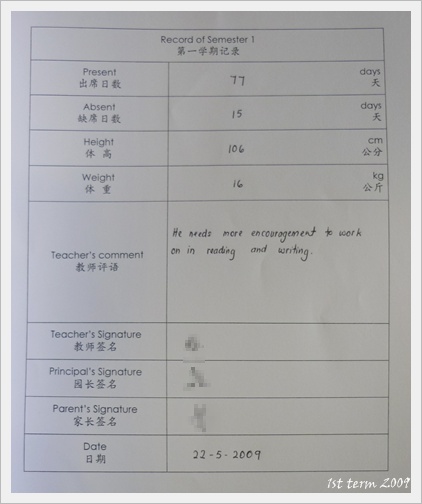 Record of Semester 1
第一学期记录
Present
出席日数
77
days
天
Absent
缺席日数
15
days
天
Height
体 高
106
cm
公分
Weight
体 重
16
kg
公斤
Teacher's comment
教师评语
He needs more encouragement to work
on in reading and writing.
Teacher's Signature
教师签名
Principal's Signature
园长签名
Parent's Signature
家长签名
Date
日期
22-5-2009
1st term 2009